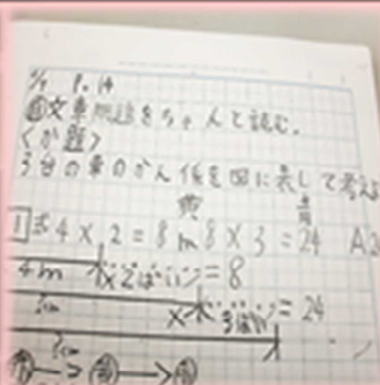 P.14
文章問題をちゃんと読む。
<か題>
3台の車のかん係を図に表して考える
黄 青
1 式 4×2=8m 8×3=24 A2
4m ×2ばい=8
?cm ×3ばい=24
?cm